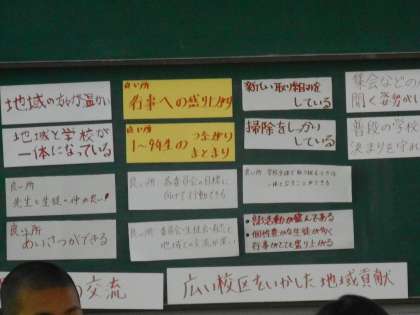 地域の方が温かい
良い所
行事への盛り上がり
新しい取り組みを
している
集会などの
聞く姿勢が
地域と学校が
一体になっている
良い所
1〜9年生の つながり
まとまり
掃除をしっかり
している
普段の学校
決まりを守れ
良い所
先生と生徒の仲の良い
良い所
各委員会の目標に
向けて行動できる
良い所
良い所
あいさつができる
良い所
地域との交流が
部活動が盛んである
個性豊かな生徒が多く
行事がとても盛り上がる
の交流
広い校区をいかした地域貢献